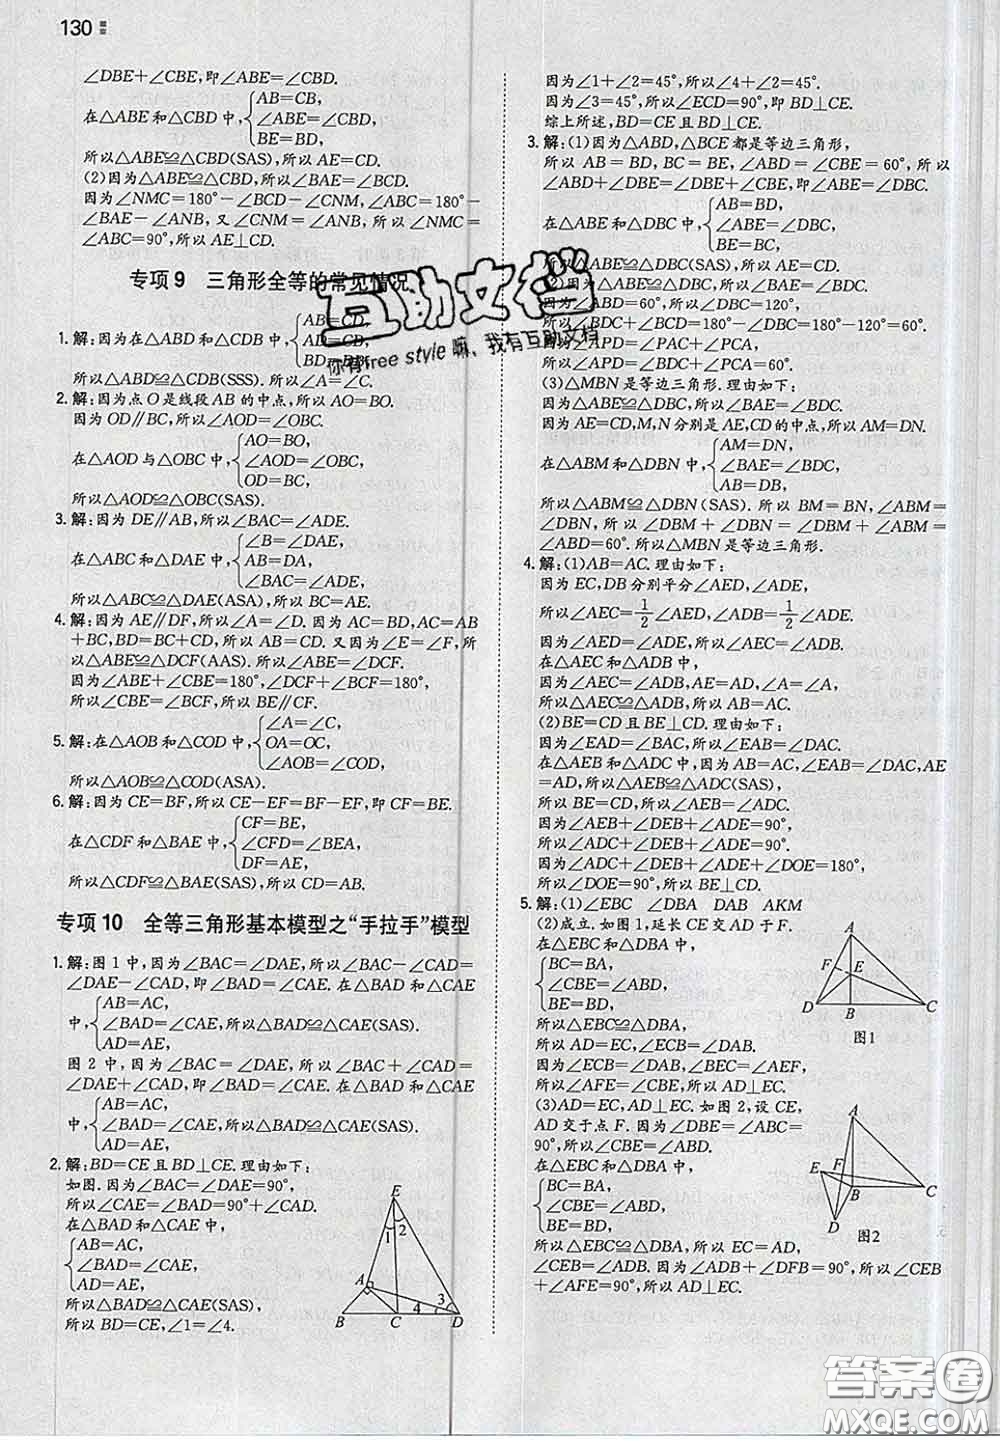 130
∠DBE+∠CBE,即∠ABE=∠CBD.
AB=CB,
在△ABE和△CBD中, ∠ABE=∠CBD,
BE=BD,
所以△ABE≌△CBD(SAS),所以AE=CD.
(2)因为△ABE≌△CBD,所以∠BAE=∠BCD.
因为∠NMC=180°-∠BCD-∠CNM,∠ABC=180°-
∠BAE-∠ANB,又∠CNM=∠ANB,所以∠NMC=
∠ABC=90°,所以AE⊥CD.
专项9 三角形全等的常见情况
AB=CD,
1.解:因为在△ABD和△CDB中,
所以△ABD≌△CDB(SSS).所以∠A=∠C.
2.解:因为点O是线段AB的中点,所以AO=BO.
因为OD∥BC,所以∠AOD=∠OBC.
AO=BO,
在△AOD与△OBC中, ∠AOD=∠OBC,
OD=BC,
所以△AOD≌△OBC(SAS).
3.解:因为DE∥AB,所以∠BAC=∠ADE.
∠B=∠DAE,
在△ABC和△DAE中, AB=DA,
∠BAC=∠ADE,
所以△ABC≌△DAE(ASA),所以BC=AE.
4.解:因为AE∥DF,所以∠A=∠D.因为AC=BD,AC=AB
+BC,BD=BC+CD,所以AB=CD.又因为∠E=∠F,所
以△ABE≌△DCF(AAS).所以∠ABE=∠DCF.
因为∠ABE+∠CBE=180°,∠DCF+∠BCF=180°,
所以∠CBE=∠BCF,所以BE∥CF.
∠A=∠C,
5.解:在△AOB和△COD中, OA=OC,
∠AOB=∠COD,
所以△AOB≌△COD(ASA).
6.解:因为CE=BF,所以CE-EF=BF-EF,即CF=BE.
CF=BE,
在△CDF和△BAE中, ∠CFD=∠BEA,
DF=AE,
所以△CDF≌△BAE(SAS),所以CD=AB.
专项10 全等三角形基本模型之“手拉手”模型
1.解:图1中,因为∠BAC=∠DAE,所以∠BAC-∠CAD=
∠DAE-∠CAD,即∠BAD=∠CAE.在△BAD和△CAE
AB=AC,
中, ∠BAD=∠CAE,所以△BAD≌△CAE(SAS).
AD=AE,
图2中,因为∠BAC=∠DAE,所以∠BAC+∠CAD=
∠DAE+∠CAD,即∠BAD=∠CAE.在△BAD和△CAE
AB=AC,
中, ∠BAD=∠CAE,所以△BAD≌△CAE(SAS).
AD=AE,
2.解:BD=CE且BD⊥CE.理由如下:
如图.因为∠BAC=∠DAE=90°,
所以∠CAE=∠BAD=90°+∠CAD.
在△BAD和△CAE中,
AB=AC,
∠BAD=∠CAE,
AD=AE,
所以△BAD≌△CAE(SAS),
所以BD=CE,∠1=∠4.
E
1 2
A
3
4
B C D
因为∠1+∠2=45°,所以∠4+∠2=45°.
因为∠3=45°,所以∠ECD=90°,即BD⊥CE.
综上所述,BD=CE且BD⊥CE.
3.解:(1)因为△ABD,△BCE都是等边三角形,
所以AB=BD,BC=BE,∠ABD=∠CBE=60°,所以
∠ABD+∠DBE=∠CBE+∠DBE,即∠ABE=∠DBC.
AB=BD,
在△ABE和△DBC中, ∠ABE=∠DBC,
BE=BC,
所以△ABE≌△DBC(SAS),所以AE=CD.
(2)因为△ABE≌△DBC,所以∠BAE=∠BDC.
因为∠ABD=60°,∠DBC=120°,
所以∠BDC+∠BCD=180°-∠DBC=180°-120°=60°.
所以∠APD=∠PAC+∠PCA,
所以∠APD=60°.
(3)△MBN是等边三角形.理由如下:
因为△ABE≌△DBC,所以∠BAE=∠BDC.
因为AE=CD,M,N分别是AE,CD的中点,所以AM=DN.
AM=DN,
在△ABM和△DBN中, ∠BAE=∠BDC,
AB=DB,
所以△ABM≌△DBN(SAS).所以BM=BN,∠ABM=
∠DBN,所以∠DBM+∠DBN=∠DBM+∠ABM=
∠ABD=60°.所以△MBN是等边三角形.
4.解:(1)AB=AC.理由如下:
因为EC,DB分别平分∠AED,∠ADE,
所以∠AEC=1/2∠AED,∠ADB=1/2∠ADE.
因为∠AED=∠ADE,所以∠AEC=∠ADB.
在△AEC和△ADB中,
因为∠AEC=∠ADB,AE=AD,∠A=∠A,
所以△AEC≌△ADB,所以AB=AC.
(2)BE=CD且BE⊥CD.理由如下:
因为∠EAD=∠BAC,所以∠EAB=∠DAC.
在△AEB和△ADC中,因为AB=AC,∠EAB=∠DAC,AE
=AD,所以△AEB≌△ADC(SAS),
所以BE=CD,所以∠AEB=∠ADC.
因为∠AEB+∠DEB+∠ADE=90°,
所以∠ADC+∠DEB+∠ADE=90°.
因为∠ADC+∠DEB+∠ADE+∠DOE=180°,
所以∠DOE=90°,所以BE⊥CD.
5.解:(1)∠EBC ∠DBA DAB AKM
(2)成立.如图1,延长CE交AD于F.
在△EBC和△DBA中,
BC=BA,
∠EBC=∠ABD,
BE=BD,
所以△EBC≌△DBA,
所以AD=EC,∠ECB=∠DAB.
因为∠ECB=∠DAB,∠BEC=∠AEF,
所以∠AFE=∠CBE=90°,所以AD⊥EC.
(3)AD=EC,AD⊥EC.如图2,设CE,
AD交于点F.因为∠DBE=∠ABC=
90°,所以∠CBE=∠ABD.
在△EBC和△DBA中,
BC=BA,
∠CBE=∠ABD,
BE=BD,
所以△EBC≌△DBA,所以EC=AD,
∠CEB=∠ADB.因为∠ADB+∠DFB=90°,所以∠CEB
+∠AFE=90°,所以AD⊥EC.
A
F
E
D B C
图1
A
E F
B C
D
图2
互助文档
你有free style嘛、我有互助文档
答案圈
MXQE.COM